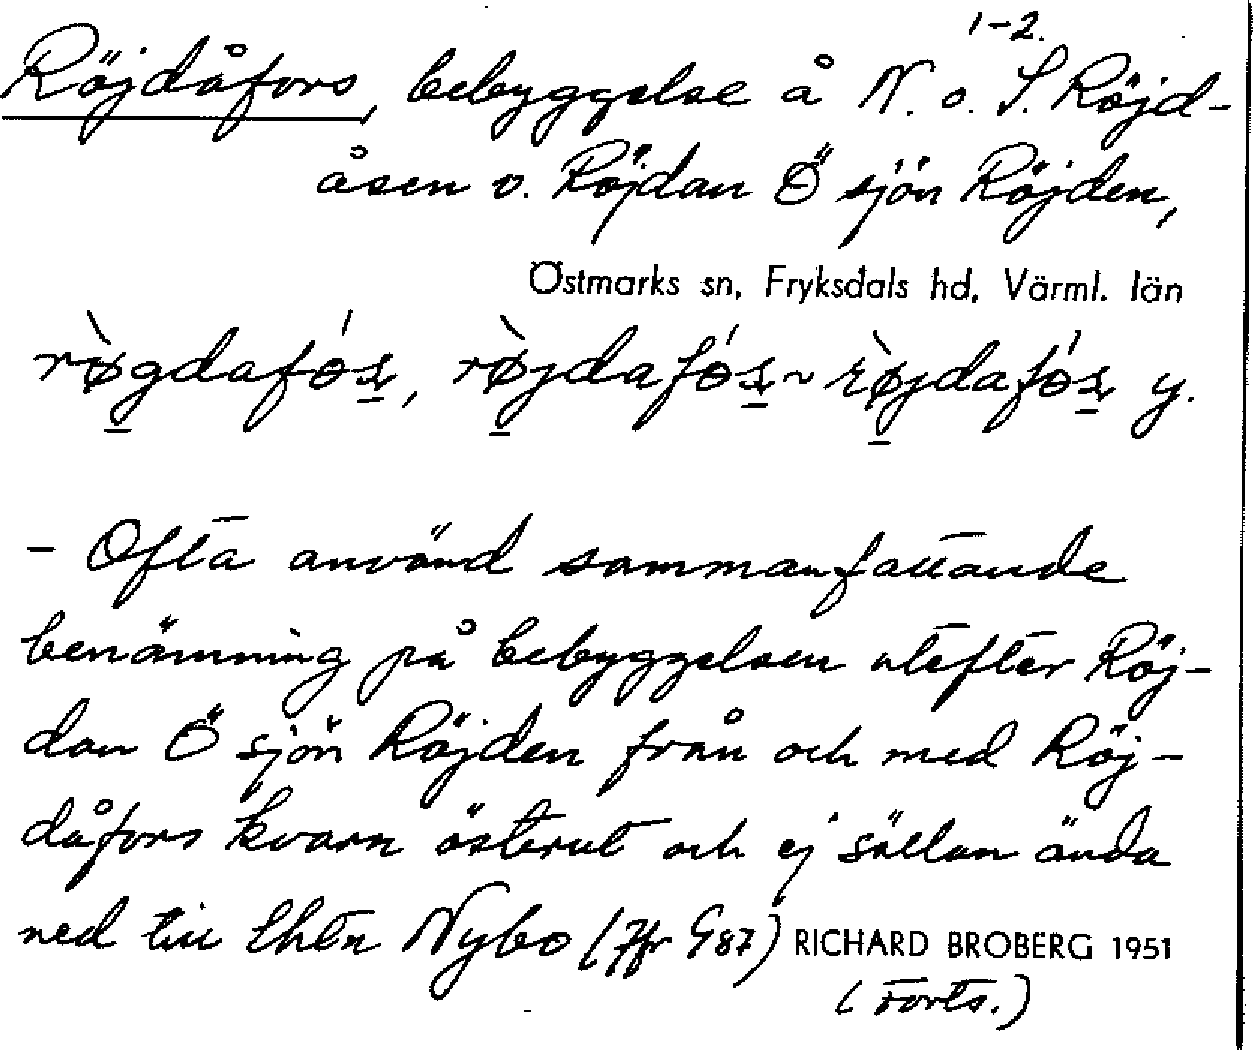 1-2.
Röjdåfors, bebyggelse å N. o. S. Röjd-
åsen v. Röjdan Ö sjön Röjden,
Östmarks sn, Fryksdals hd, Värml. län
rø̀gdafós, rø̀jdafós ~ rø̀jdafós y.
- Ofta använd sammanfattande
benämning på bebyggelsen utefter Röj-
dan Ö sjön Röjden från och med Röj-
dåfors kvarn österut och ej sällan ända
ned till Nybo (Jfr G87) RICHARD BROBERG 1951
(Forts.)